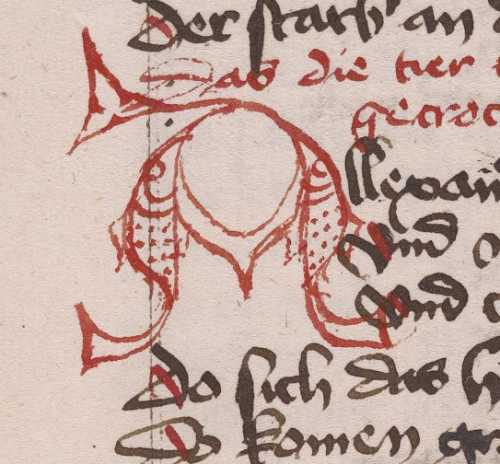 der starb an
Das die tier
getroc
Allexan
vnd
vnd
Do sich das h
Do komen gr